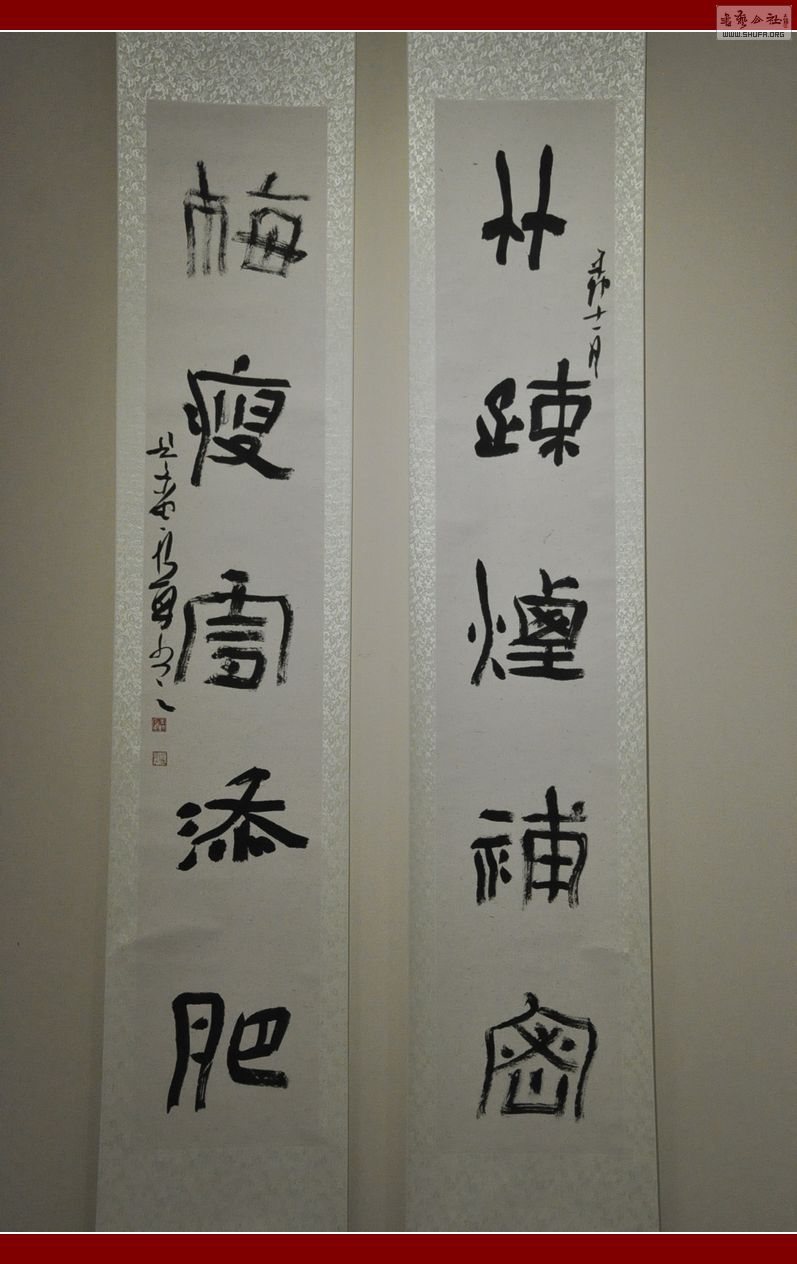 竹疎煙補密
十一月
梅瘦雪添肥
書藝公社
WWW.SHUFA.ORG